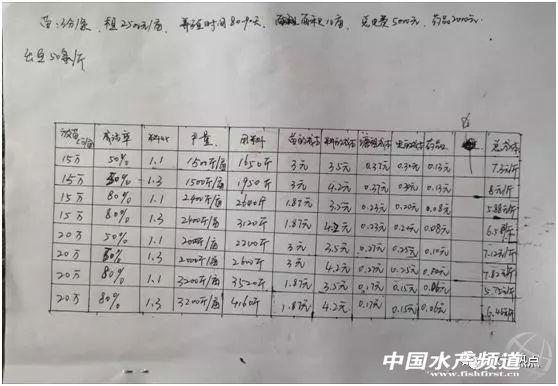 苗:3分/条、租2500元/亩、养殖时间80-90天、面积10亩、总电费5000元、药品2000元
出虾50条/斤
放苗 成活率 料比 产量 用料 苗的成本 料的成本 塘租成本 电的成本 药品 总成本
15万 50% 1.1 1500斤/亩 1650斤 3元 3.5元 0.37元 0.30元 0.13元 7.3元/斤
15万 50% 1.3 1500斤/亩 1950斤 3元 4.2元 0.37元 0.30元 0.13元 8元/斤
15万 80% 1.1 2400斤/亩 2640斤 1.87元 3.5元 0.23元 0.20元 0.08元 5.88元/斤
15万 80% 1.3 2400斤/亩 3120斤 1.87元 4.2元 0.23元 0.20元 0.08元 6.58元/斤
20万 50% 1.1 2000斤/亩 2200斤 3元 3.5元 0.27元 0.25元 0.10元 7.12元/斤
20万 50% 1.3 2000斤/亩 2600斤 3元 4.2元 0.27元 0.25元 0.10元 7.82元/斤
20万 80% 1.1 3200斤/亩 3520斤 1.87元 3.5元 0.17元 0.15元 0.06元 5.75元/斤
20万 80% 1.3 3200斤/亩 4160斤 1.87元 4.2元 0.17元 0.15元 0.06元 6.45元/斤
观点
中国水产频道
www.fishfirst.cn